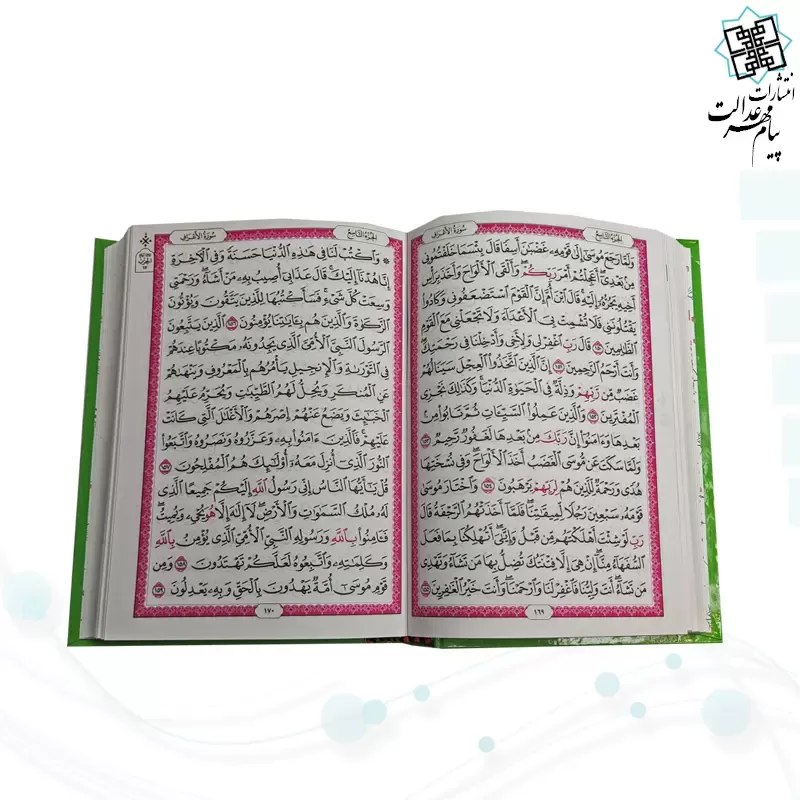 انتشارات
پیام مهر عدالت
الجزء التاسع
سورة الأعراف
وَلَمَّا رَجَعَ مُوسَىٰٓ إِلَىٰ قَوْمِهِۦ غَضْبَٰنَ أَسِفًا قَالَ بِئْسَمَا خَلَفْتُمُونِى
مِنۢ بَعْدِىٓ أَعَجِلْتُمْ أَمْرَ رَبِّكُمْ وَأَلْقَى ٱلْأَلْوَاحَ وَأَخَذَ بِرَأْسِ
أَخِيهِ يَجُرُّهُۥٓ إِلَيْهِ قَالَ ٱبْنَ أُمَّ إِنَّ ٱلْقَوْمَ ٱسْتَضْعَفُونِى وَكَادُوا۟
يَقْتُلُونَنِى فَلَا تُشْمِتْ بِىَ ٱلْأَعْدَآءَ وَلَا تَجْعَلْنِى مَعَ ٱلْقَوْمِ
ٱلظَّٰلِمِينَ ١٥٠ قَالَ رَبِّ ٱغْفِرْ لِى وَلِأَخِى وَأَدْخِلْنَا فِى رَحْمَتِكَ
وَأَنتَ أَرْحَمُ ٱلرَّٰحِمِينَ ١٥١ إِنَّ ٱلَّذِينَ ٱتَّخَذُوا۟ ٱلْعِجْلَ سَيَنَالُهُمْ
غَضَبٌ مِّن رَّبِّهِمْ وَذِلَّةٌ فِى ٱلْحَيَوٰةِ ٱلدُّنْيَا وَكَذَٰلِكَ نَجْزِى
ٱلْمُفْتَرِينَ ١٥٢ وَٱلَّذِينَ عَمِلُوا۟ ٱلسَّيِّـَٔاتِ ثُمَّ تَابُوا۟ مِنۢ
بَعْدِهَا وَءَامَنُوٓا۟ إِنَّ رَبَّكَ مِنۢ بَعْدِهَا لَغَفُورٌ رَّحِيمٌ ١٥٣
وَلَمَّا سَكَتَ عَن مُّوسَى ٱلْغَضَبُ أَخَذَ ٱلْأَلْوَاحَ وَفِى نُسْخَتِهَا
هُدًى وَرَحْمَةٌ لِّلَّذِينَ هُمْ لِرَبِّهِمْ يَرْهَبُونَ ١٥٤ وَٱخْتَارَ مُوسَىٰ
قَوْمَهُۥ سَبْعِينَ رَجُلًا لِّمِيقَٰتِنَا فَلَمَّآ أَخَذَتْهُمُ ٱلرَّجْفَةُ قَالَ
رَبِّ لَوْ شِئْتَ أَهْلَكْتَهُم مِّن قَبْلُ وَإِيَّٰىَ أَتُهْلِكُنَا بِمَا فَعَلَ
ٱلسُّفَهَآءُ مِنَّآ إِنْ هِىَ إِلَّا فِتْنَتُكَ تُضِلُّ بِهَا مَن تَشَآءُ وَتَهْدِى
مَن تَشَآءُ أَنتَ وَلِيُّنَا فَٱغْفِرْ لَنَا وَٱرْحَمْنَا وَأَنتَ خَيْرُ ٱلْغَٰفِرِينَ ١٥٥
١٦٩
الجزء التاسع
سورة الأعراف
وَٱكْتُبْ لَنَا فِى هَٰذِهِ ٱلدُّنْيَا حَسَنَةً وَفِى ٱلْـَٔاخِرَةِ
إِنَّا هُدْنَآ إِلَيْكَ قَالَ عَذَابِىٓ أُصِيبُ بِهِۦ مَنْ أَشَآءُ وَرَحْمَتِى
وَسِعَتْ كُلَّ شَىْءٍ فَسَأَكْتُبُهَا لِلَّذِينَ يَتَّقُونَ وَيُؤْتُونَ
ٱلزَّكَوٰةَ وَٱلَّذِينَ هُم بِـَٔايَٰتِنَا يُؤْمِنُونَ ١٥٦ ٱلَّذِينَ يَتَّبِعُونَ
ٱلرَّسُولَ ٱلنَّبِىَّ ٱلْأُمِّىَّ ٱلَّذِى يَجِدُونَهُۥ مَكْتُوبًا عِندَهُمْ
فِى ٱلتَّوْرَىٰةِ وَٱلْإِنجِيلِ يَأْمُرُهُم بِٱلْمَعْرُوفِ وَيَنْهَىٰهُمْ
عَنِ ٱلْمُنكَرِ وَيُحِلُّ لَهُمُ ٱلطَّيِّبَٰتِ وَيُحَرِّمُ عَلَيْهِمُ
ٱلْخَبَٰٓئِثَ وَيَضَعُ عَنْهُمْ إِصْرَهُمْ وَٱلْأَغْلَٰلَ ٱلَّتِى كَانَتْ
عَلَيْهِمْ فَٱلَّذِينَ ءَامَنُوا۟ بِهِۦ وَعَزَّرُوهُ وَنَصَرُوهُ وَٱتَّبَعُوا۟
ٱلنُّورَ ٱلَّذِىٓ أُنزِلَ مَعَهُۥٓ أُو۟لَٰٓئِكَ هُمُ ٱلْمُفْلِحُونَ ١٥٧
قُلْ يَٰٓأَيُّهَا ٱلنَّاسُ إِنِّى رَسُولُ ٱللَّهِ إِلَيْكُمْ جَمِيعًا ٱلَّذِى
لَهُۥ مُلْكُ ٱلسَّمَٰوَٰتِ وَٱلْأَرْضِ لَآ إِلَٰهَ إِلَّا هُوَ يُحْىِۦ وَيُمِيتُ
فَـَٔامِنُوا۟ بِٱللَّهِ وَرَسُولِهِ ٱلنَّبِىِّ ٱلْأُمِّىِّ ٱلَّذِى يُؤْمِنُ بِٱللَّهِ
وَكَلِمَٰتِهِۦ وَٱتَّبِعُوهُ لَعَلَّكُمْ تَهْتَدُونَ ١٥٨ وَمِن
قَوْمِ مُوسَىٰٓ أُمَّةٌ يَهْدُونَ بِٱلْحَقِّ وَبِهِۦ يَعْدِلُونَ ١٥٩
١٧٠